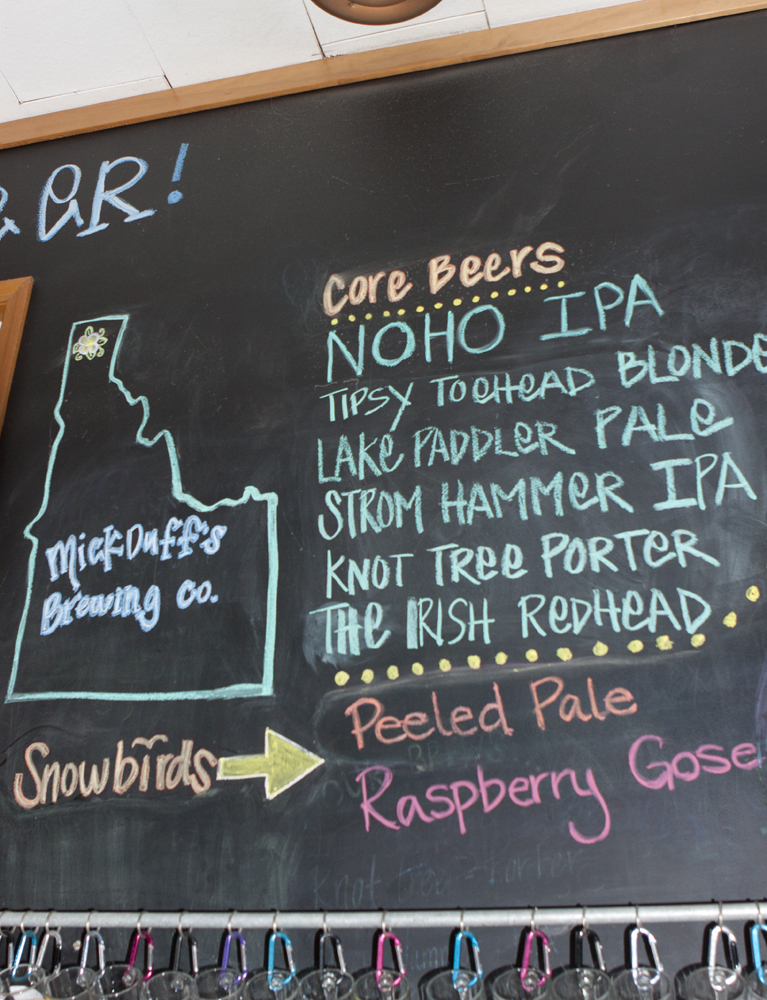 & GR!
Core Beers
NOHO IPA
TIPSY TOEHEAD BLONDE
LAKE PADDLER PALE
STROM HAMMER IPA
KNOT TREE PORTER
THE IRISH REDHEAD
MickDuff's
Brewing co.
Snowbirds
Peeled Pale
Raspberry Gose
Knot tree Porter